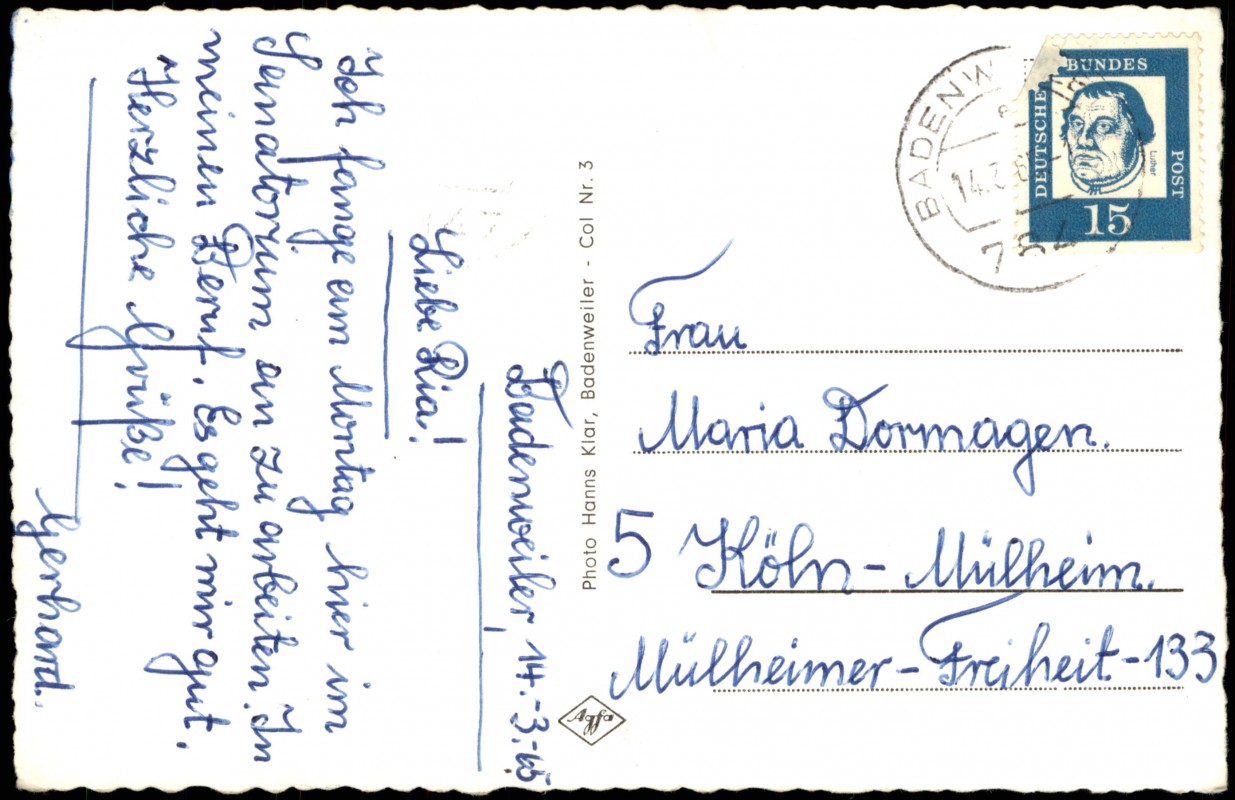 Badenweiler, 14.-3.-65
Liebe Ria!
Ich fange am Montag hier im
Sanatorium an zu arbeiten. In
meinen Beruf. Es geht mir gut.
Herzliche Grüße!
Gerhard.
Photo Hanns Klar, Badenweiler - Col Nr. 3
Agfa
BADENW
14.3.6
784
DEUTSCHE BUNDES POST
Luther
15
Frau
Maria Dormagen.
5 Köln - Mülheim.
Mülheimer-Freiheit-133